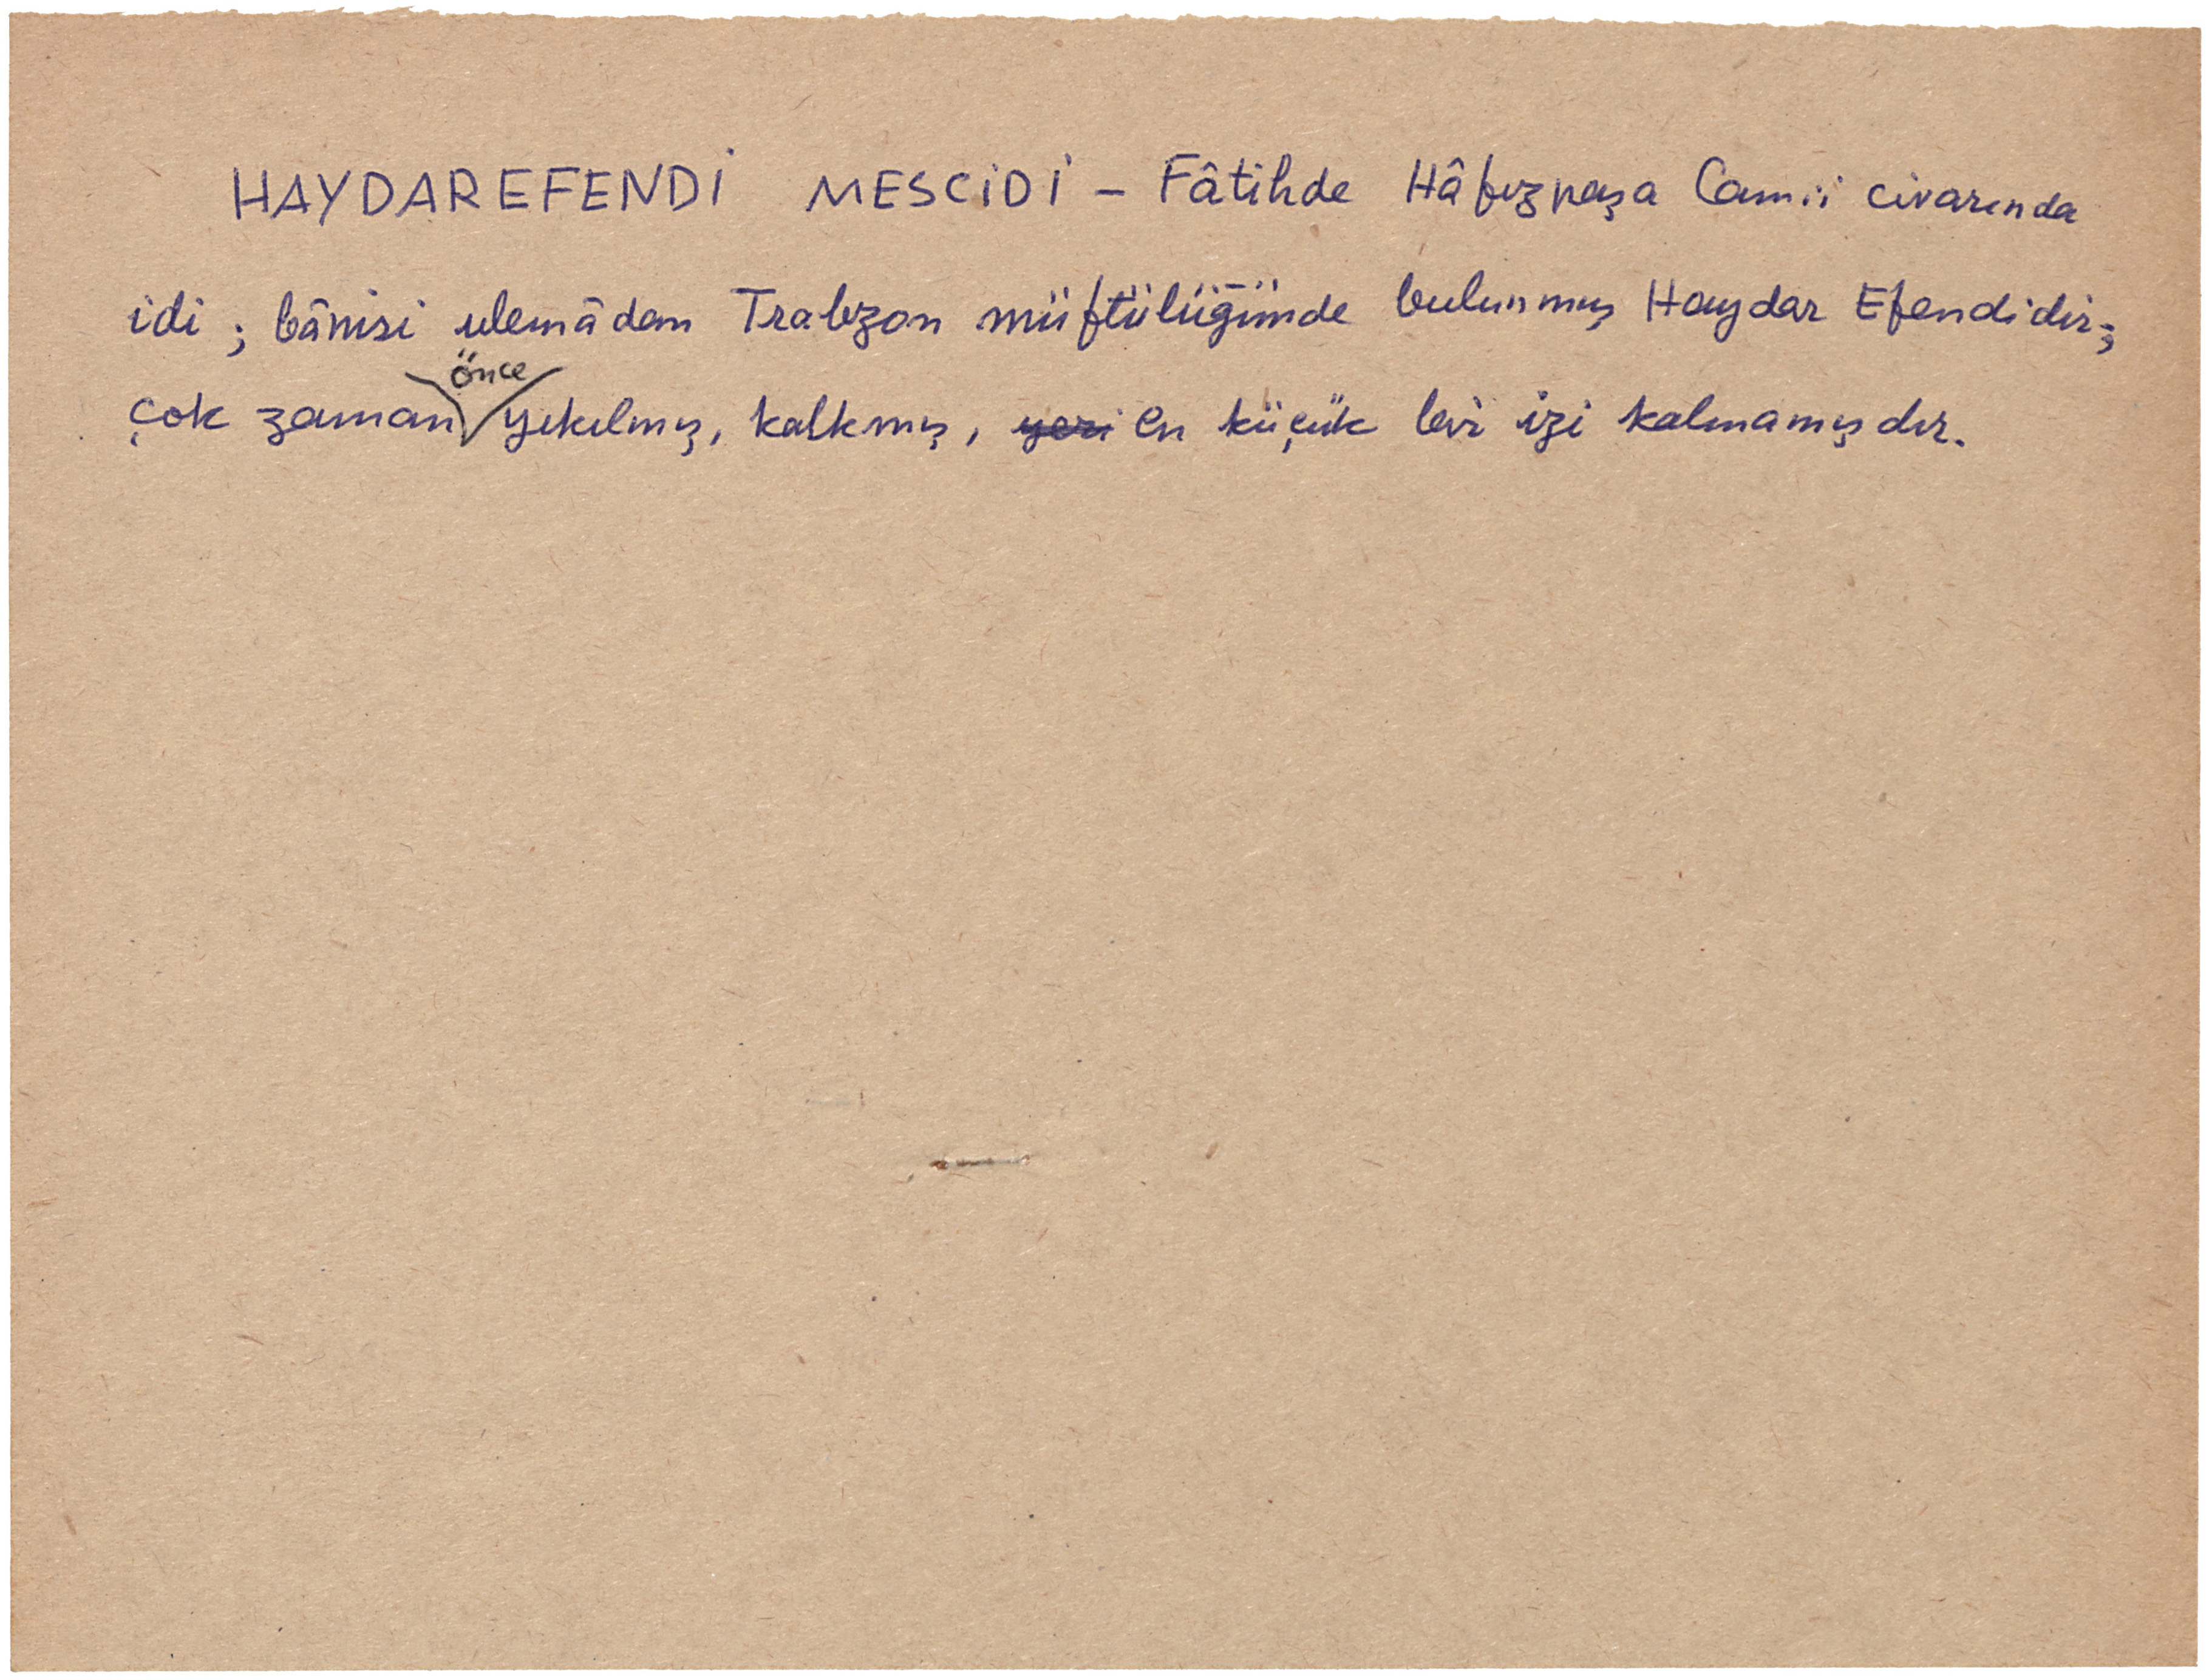 HAYDAREFENDİ MESCİDİ – Fâtihde Hâfızpaşa Camii civarında
idi; bânisi ulemâdan Trabzon müftülüğünde bulunmuş Haydar Efendidir;
çok zaman önce yıkılmış, kalkmış, yeri en küçük bir izi kalmamışdır.